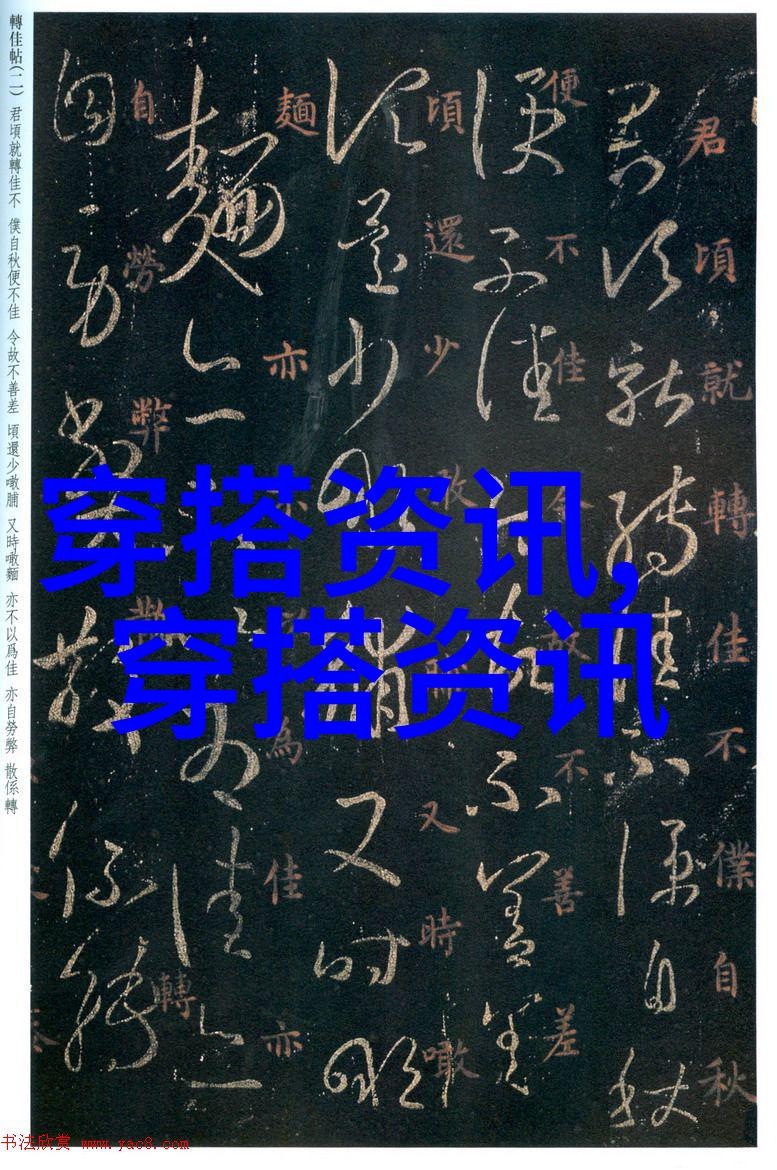 轉佳帖(二) 君頃就轉佳不 僕自秋便不佳 今故不善差 頃還少噉脯 又時噉麵 亦不以爲佳 亦自勞弊 散係轉
君頃就轉佳不僕自秋
便不佳今故不善差
頃還少噉脯又時噉
麵亦不以為佳亦
自勞弊散係轉
穿搭资讯,
穿搭资讯
书法欣赏 www.yac8.com